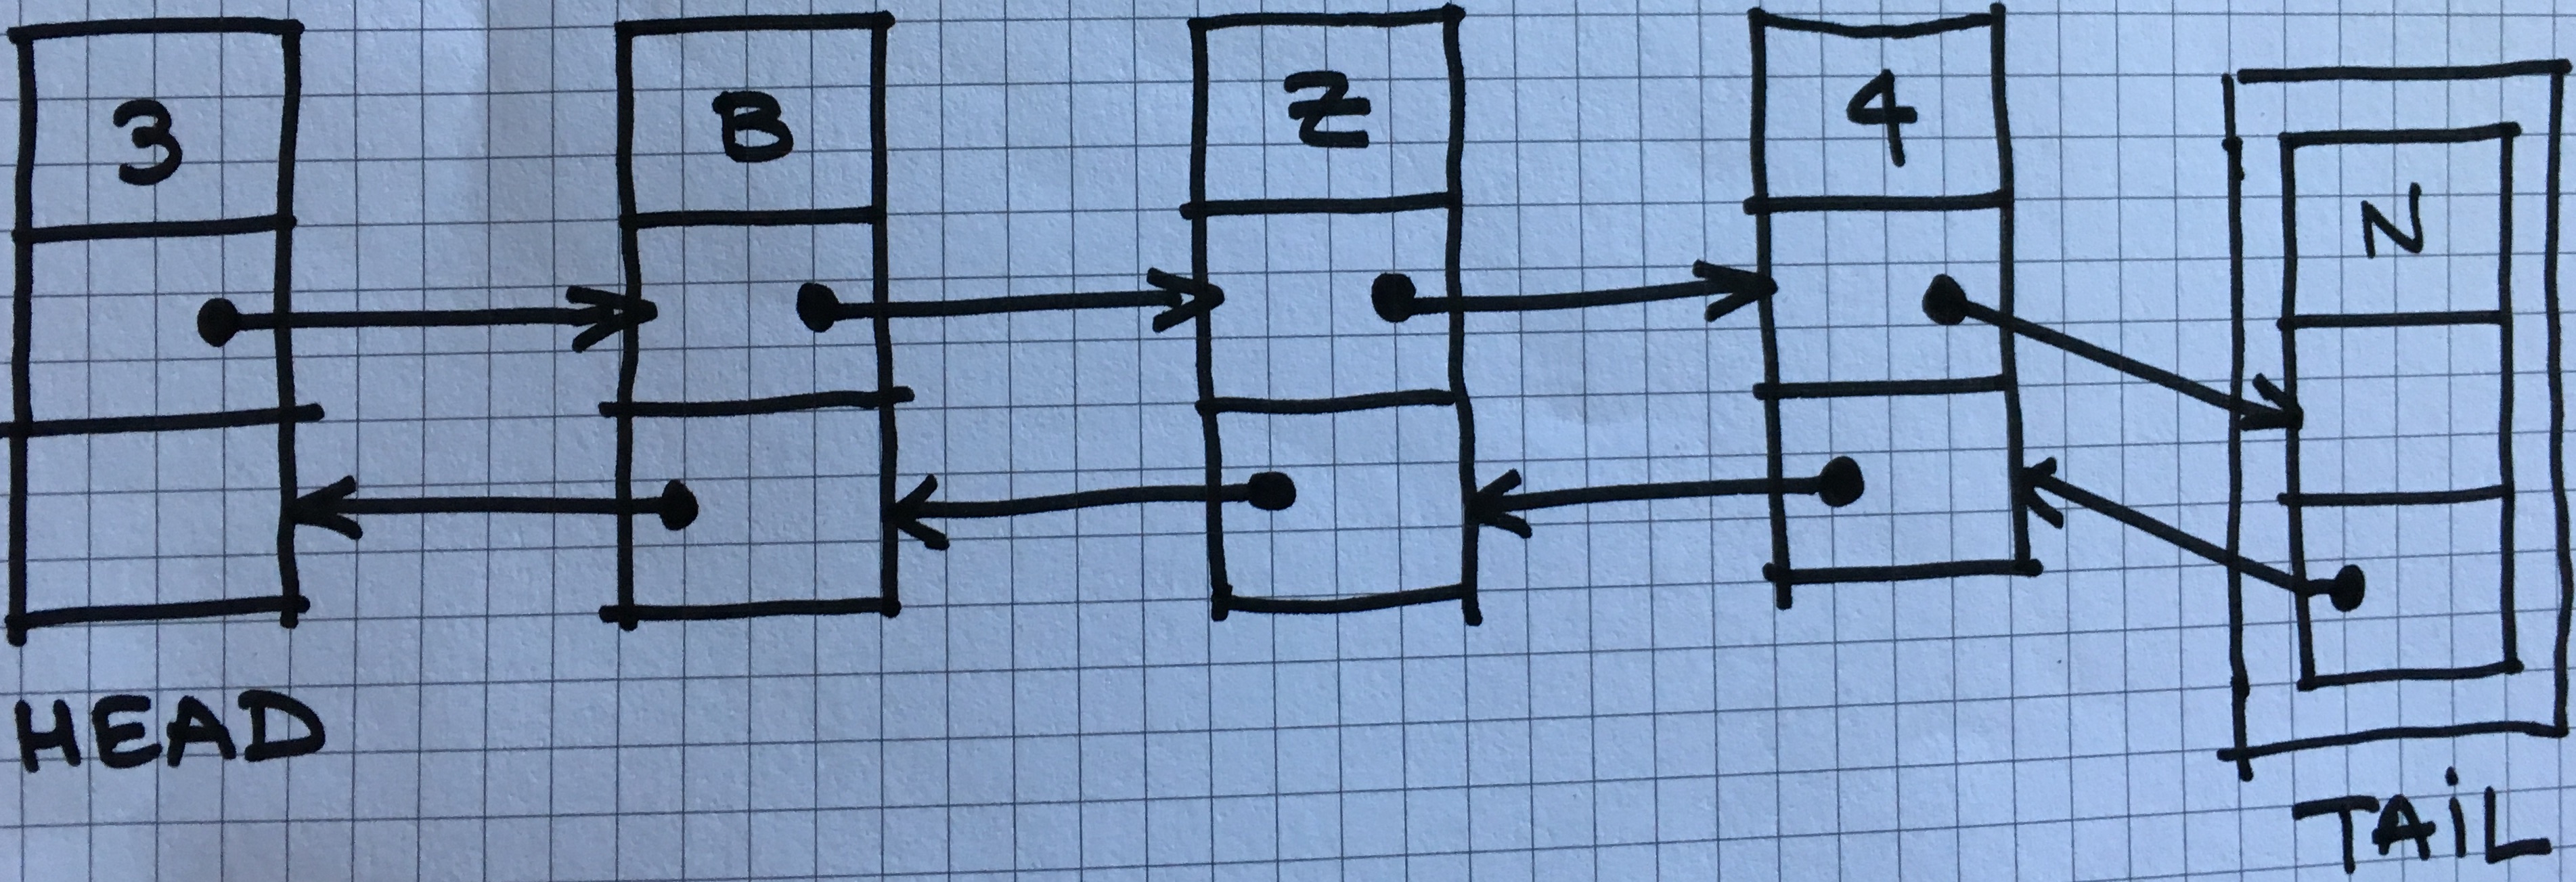 3 B Z 4 N
HEAD TAiL